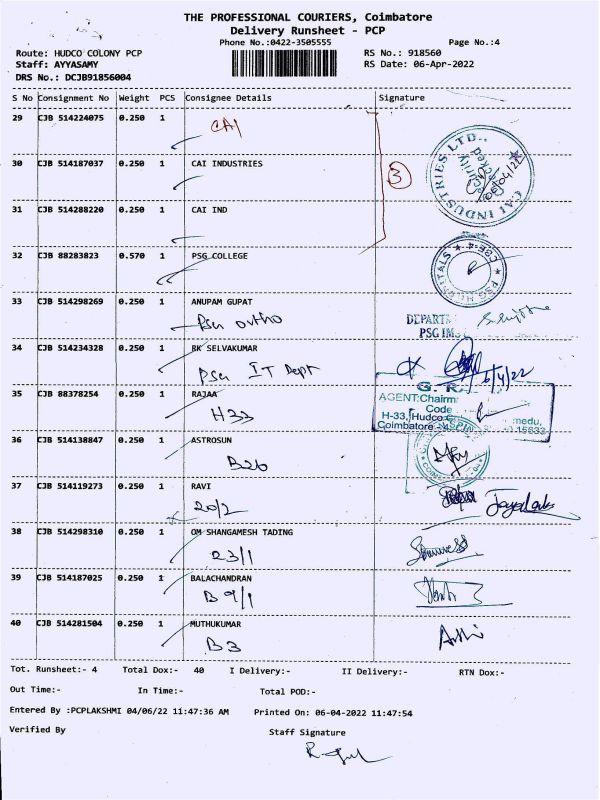 THE PROFESSIONAL COURIERS, Coimbatore
Delivery Runsheet - PCP
Phone No.:0422-3505555
Page No.:4
Route: HUDCO COLONY PCP
RS No.: 918560
Staff: AYYASAMY
RS Date: 06-Apr-2022
DRS No.: DCJB91856004
S No Consignment No Weight PCS Consignee Details Signature
29 CJB 514224075 0.250 1
CAI
3
30 CJB 514187037 0.250 1 CAI INDUSTRIES
CAI INDUSTRIES LTD.,
31 CJB 514288220 0.250 1 CAI IND
32 CJB 88283823 0.570 1 PSG COLLEGE
PSG HOSPITALS
33 CJB 514298269 0.250 1 ANUPAM GUPAT
PSG ortho
DEPART
PSG IMS
34 CJB 514234328 0.250 1 RK SELVAKUMAR
PSG IT Dept
6/4/22
35 CJB 88378254 0.250 1 RAJAA
H33
G. R.
AGENT:Chairm
Code
H-33, Hudco
medu,
Coimbatore
36 CJB 514138847 0.250 1 ASTROSUN
B26
37 CJB 514119273 0.250 1 RAVI
20/2
38 CJB 514298310 0.250 1 OM SHANGAMESH TADING
23/1
39 CJB 514187025 0.250 1 BALACHANDRAN
B 9/1
40 CJB 514281504 0.250 1 MUTHUKUMAR
B3
Tot. Runsheet:- 4 Total Dox:- 40 I Delivery:- II Delivery:- RTN Dox:-
Out Time:- In Time:- Total POD:-
Entered By :PCPLAKSHMI 04/06/22 11:47:36 AM Printed On: 06-04-2022 11:47:54
Verified By Staff Signature